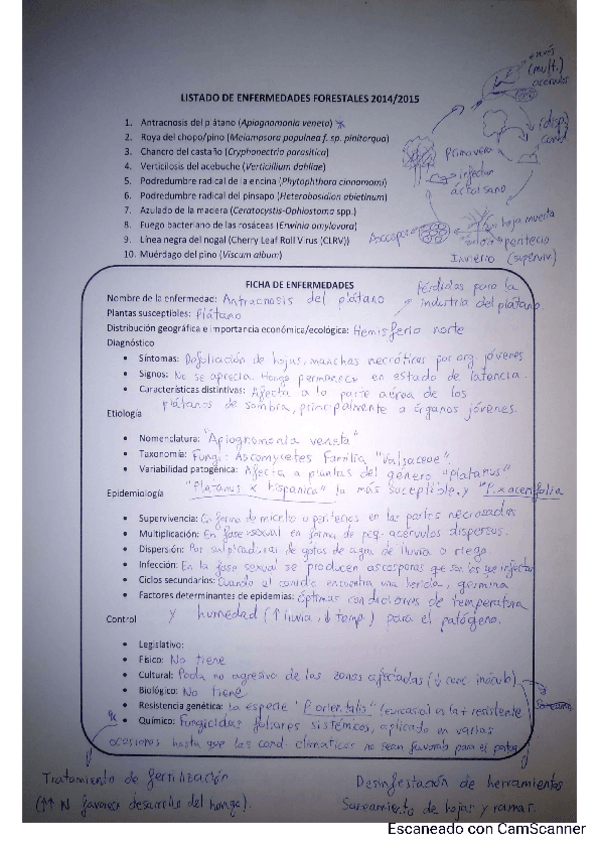 LISTADO DE ENFERMEDADES FORESTALES 2014/2015
1. Antracnosis del plátano (Apiognomonia veneta)
2. Roya del chopo/pino (Melamosora populnea f. sp. pinitorqua)
3. Chancro del castaño (Cryphonectria parasitica)
4. Verticilosis del acebuche (Verticillium dahliae)
5. Podredumbre radical de la encina (Phytophthora cinnamomi)
6. Podredumbre radical del pinsapo (Heterobasidion abietinum)
7. Azulado de la madera (Ceratocystis-Ophiostoma spp.)
8. Fuego bacteriano de las rosáceas (Erwinia amylovora)
9. Línea negra del nogal (Cherry Leaf Roll Virus (CLRV))
10. Muérdago del pino (Viscum album)
(mult.)
acérvulos
(disp)
Primavera
infección
Ascospora
hoja muerta
peritecio
Invierno (superviv)
FICHA DE ENFERMEDADES
pérdidas para la
industria del plátano
Nombre de la enfermedad: Antracnosis del plátano
Plantas susceptibles: Plátano
Distribución geográfica e importancia económica/ecológica: Hemisferio norte
Diagnóstico
• Síntomas: Defoliación de hojas, manchas necróticas por org. jóvenes
• Signos: No se aprecia. Hongo permanece en estado de latencia.
• Características distintivas: Afecta a la parte aérea de los
plátanos de sombra, principalmente a órganos jóvenes.
Etiología
• Nomenclatura: "Apiognomonia veneta"
• Taxonomía: Fungi: Ascomycetes Familia "Valsaceae"
• Variabilidad patogénica: Afecta a plantas del género "Platanus"
"Platanus x hispanica" la más suceptible y "P. x acerifolia
Epidemiología
• Supervivencia: En forma de micelio o peritecios en las partes necrosadas
• Multiplicación: En fase asexual en forma de peq. acérvulos dispersos.
• Dispersión: Por salpicaduras de gotas de agua de lluvia o riego
• Infección: En la fase sexual se producen ascosporas que son las que infectan
• Ciclos secundarios: Cuando el conidio encuentra una herida, germina
• Factores determinantes de epidemias: Óptimas condiciones de temperatura
y humedad (↑ lluvia, ↓ temp.) para el patógeno.
Control
• Legislativo:
• Físico: No tiene
• Cultural: Poda no agresiva de las zonas afectadas (↓ conc. inóculo)
• Biológico: No tiene
• Resistencia genética: La especie "P. orientalis" (eurasia) es la + resistente
• Químico: Fungicidas foliares sistémicos, aplicado en varias
ocasiones hasta que las cond. climáticas no sean favorab. para el patóg.
Tratamiento de fertilización
(↑↑ N favorece desarrollo del hongo).
Desinfestación de herramientas
Saneamiento de hojas y ramas.
Escaneado con CamScanner